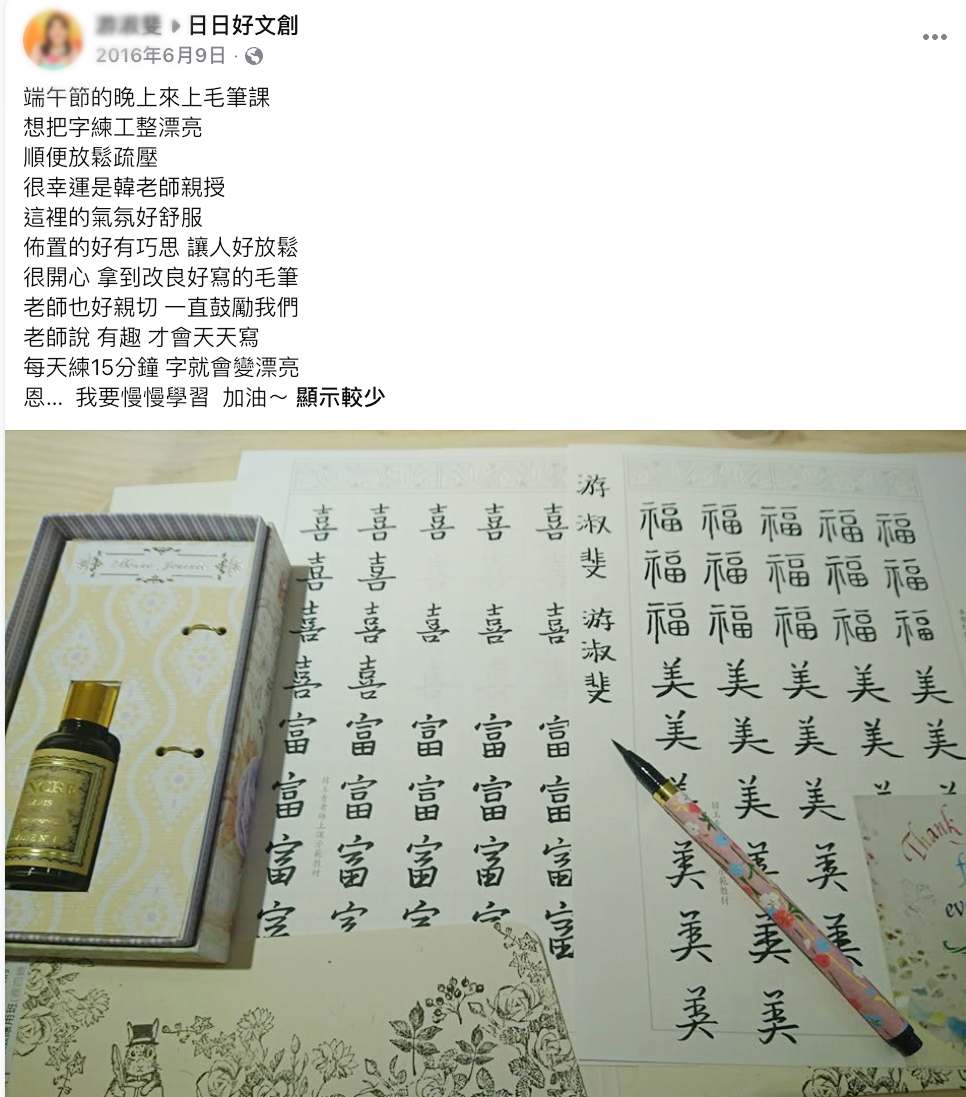 日日好文創
2016年6月9日
端午節的晚上來上毛筆課
想把字練工整漂亮
順便放鬆疏壓
很幸運是韓老師親授
這裡的氣氛好舒服
佈置的好有巧思 讓人好放鬆
很開心 拿到改良好寫的毛筆
老師也好親切 一直鼓勵我們
老師說 有趣 才會天天寫
每天練15分鐘 字就會變漂亮
恩... 我要慢慢學習 加油～ 顯示較少
喜 喜 喜 喜 喜
喜 喜
喜 喜 喜 喜 喜
喜 喜
富 富 富 富 富
富 富 富 富 富
富 富 富 富 富
富
游淑斐
游淑斐
福 福 福 福 福
福 福 福 福 福
福 福 福 福 福
美 美 美 美 美
美 美 美 美 美
美 美
美 美 美
美 美 美
美 美
Thank